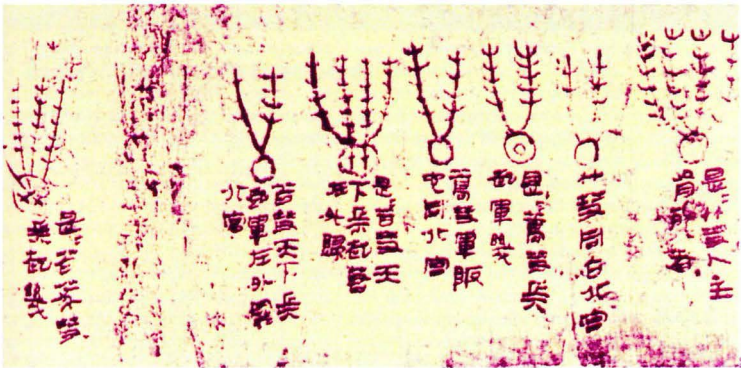 是=竹彗人主
有死者
竹彗同占北宮
是=蒿彗兵
起軍幾
蒿彗軍阪
它同北宮
是是苫彗天
下兵起若
在外歸
苫彗天下兵
起軍在外罷
北宮
是=苫發彗
兵起幾